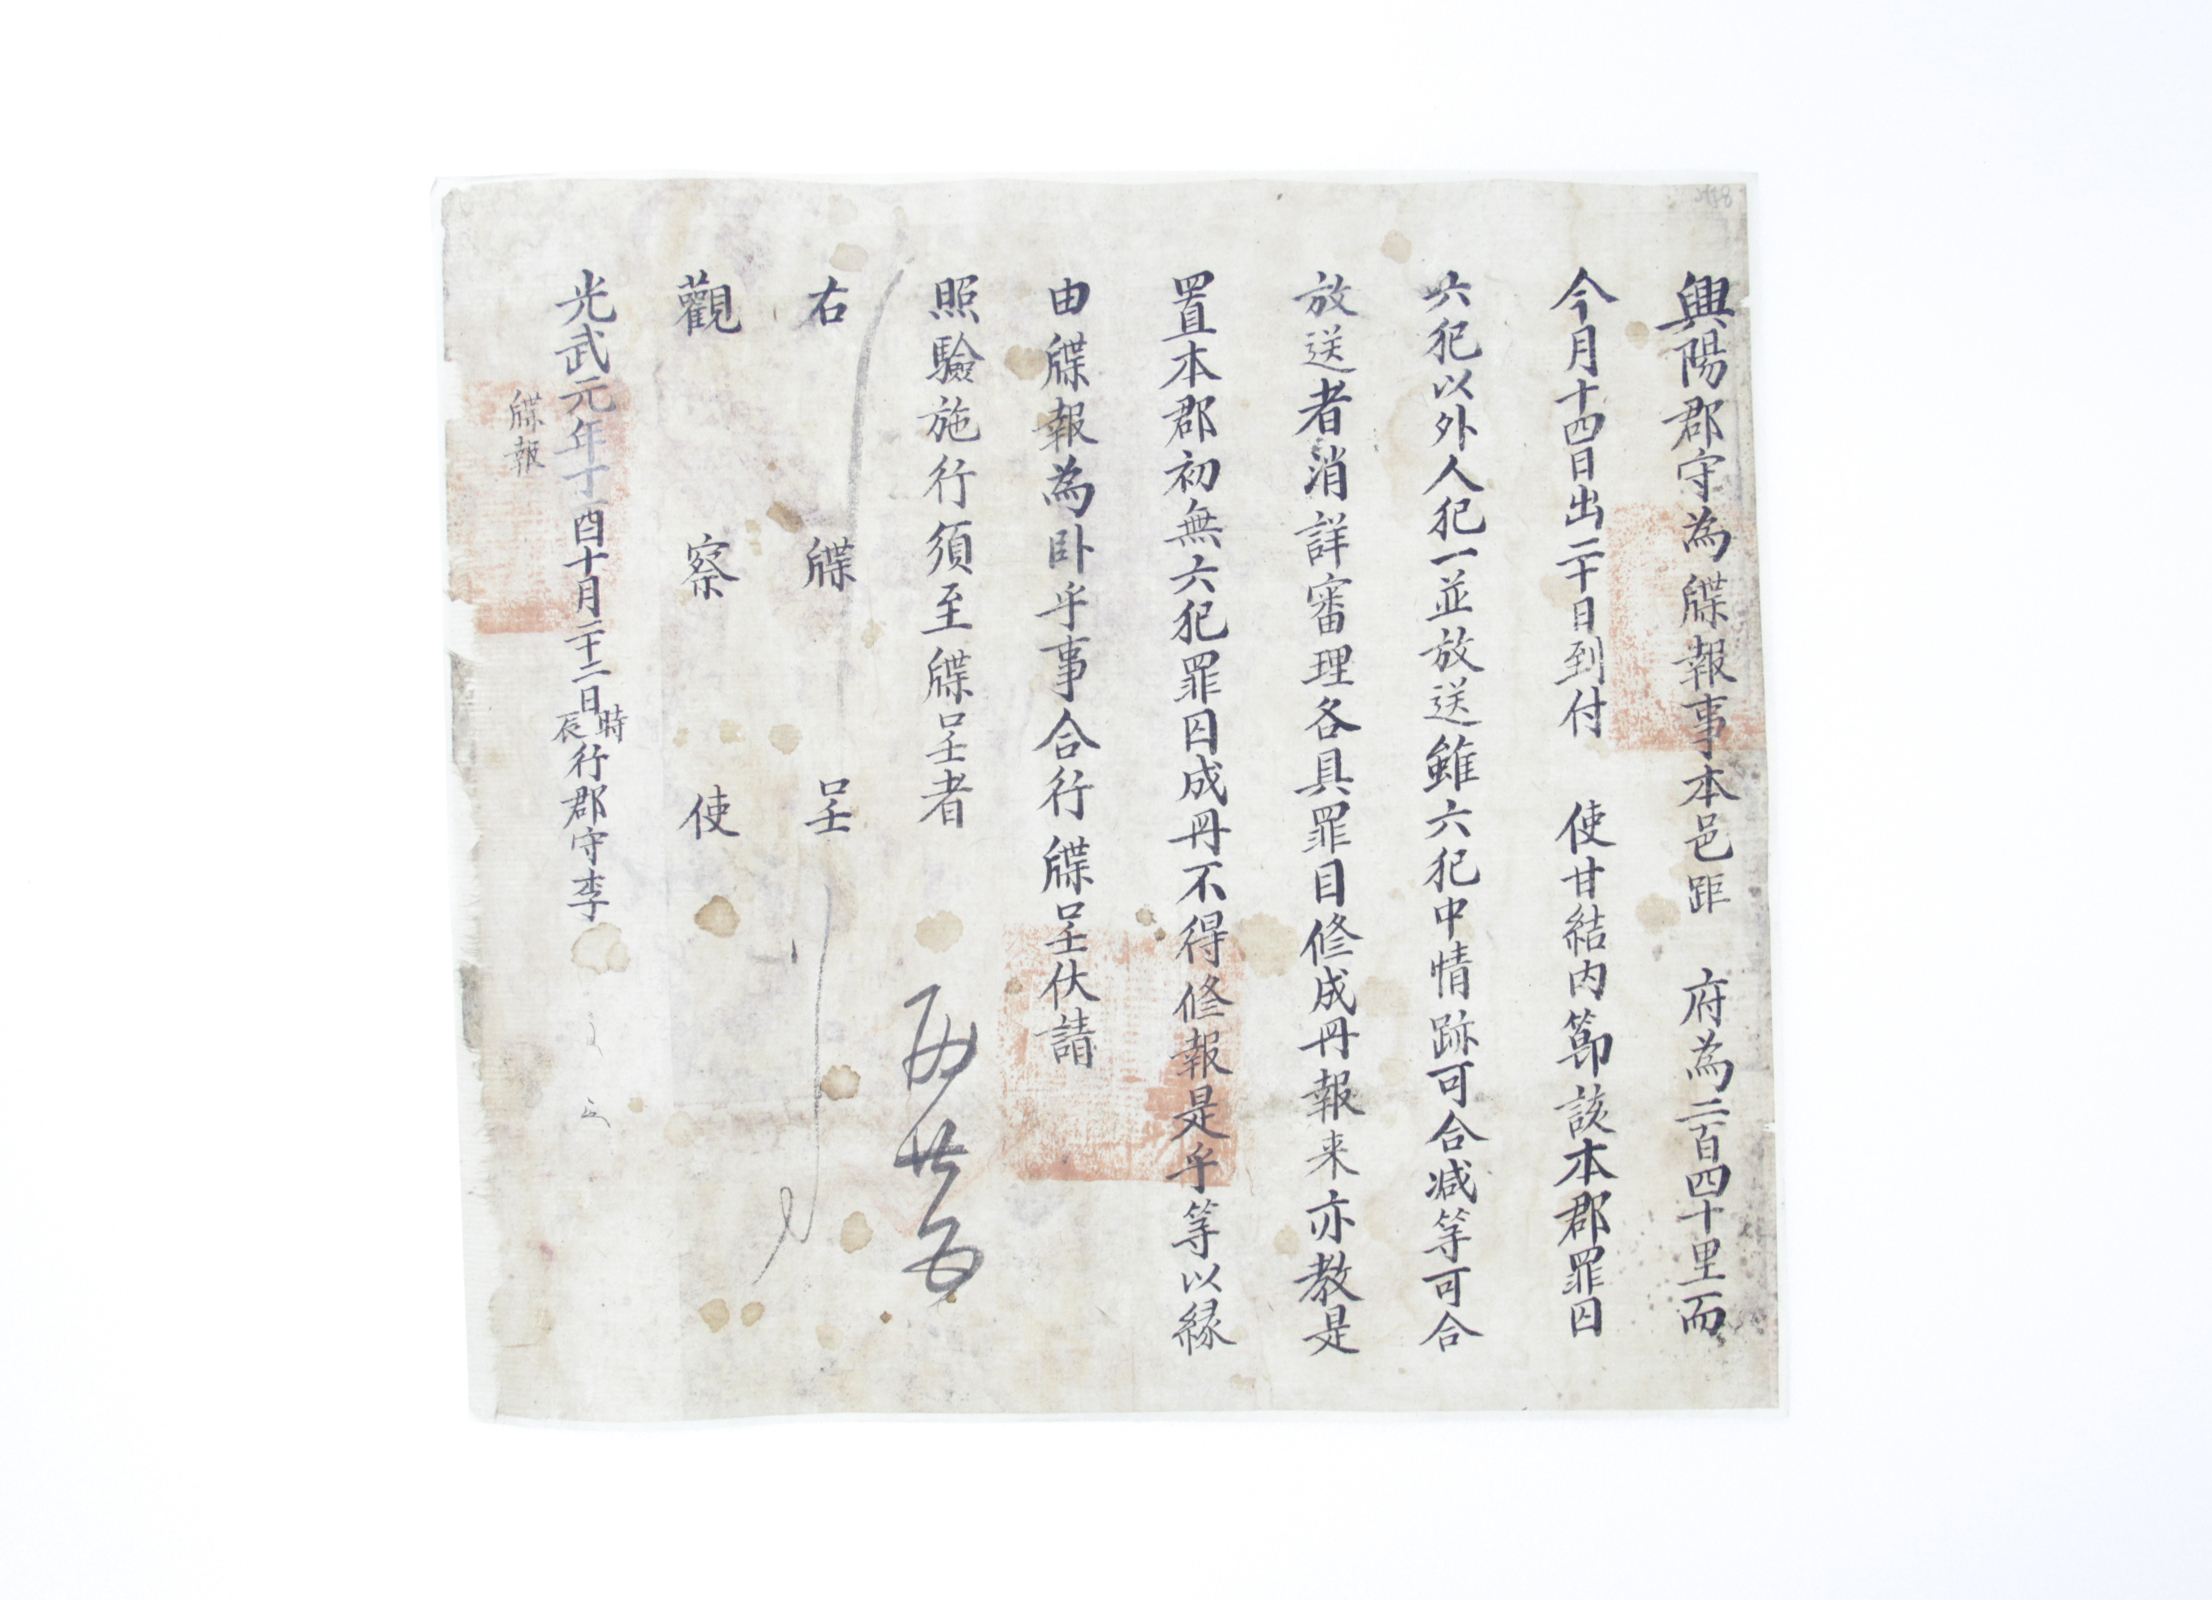 興陽郡守為牒報事本邑距 府為二百四十里而
今月十四日出二十日到付 使甘結內節該本郡罪囚
六犯以外人犯一並放送雖六犯中情跡可合減等可合
放送者消詳審理各具罪目修成冊報来亦教是
置本郡初無六犯罪囚成冊不得修報是乎等以緣
由牒報為卧乎事合行牒呈伏請
照驗施行須至牒呈者
右 牒 呈
觀 察 使
光武元年丁酉十月二十二日辰時行郡守李
牒報